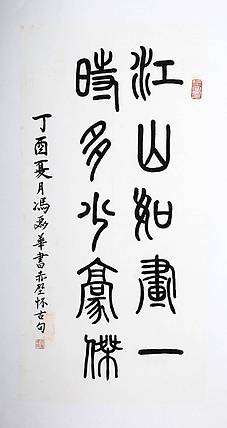 江山如畫一
時多少豪傑
丁酉夏月馮華書赤壁怀古句